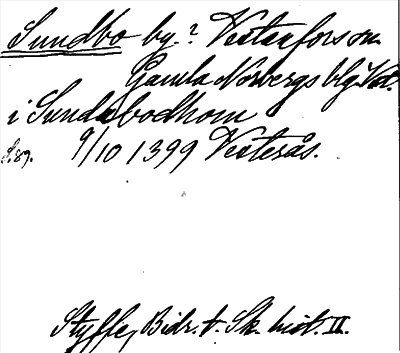 Sundbo by.? Vesterfors sn.
Gamla Norbergs blg. Vstm.
i Sundabodhom
S. 89. 9/10 1399 Vesterås.
Styffe, Bidr. t. Sk. hist. II.